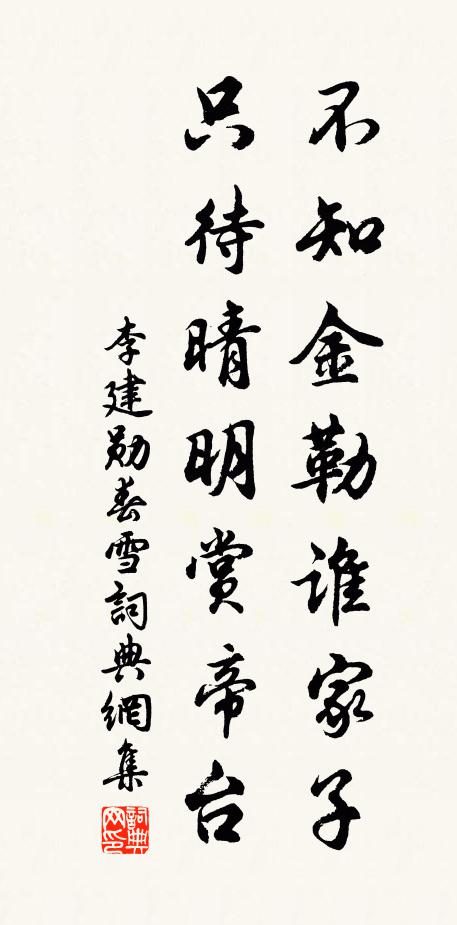 不知金勒谁家子
只待晴明赏帝台
李建勋春雪詞典網集
詞典
网印